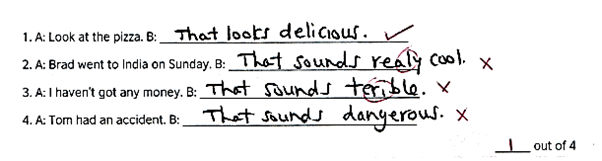 1. A: Look at the pizza. B: That looks delicious. ✓
2. A: Brad went to India on Sunday. B: That sounds realy cool. ✗
3. A: I haven't got any money. B: That sounds terible. ✗
4. A: Tom had an accident. B: That sounds dangyerous. ✗
1 out of 4